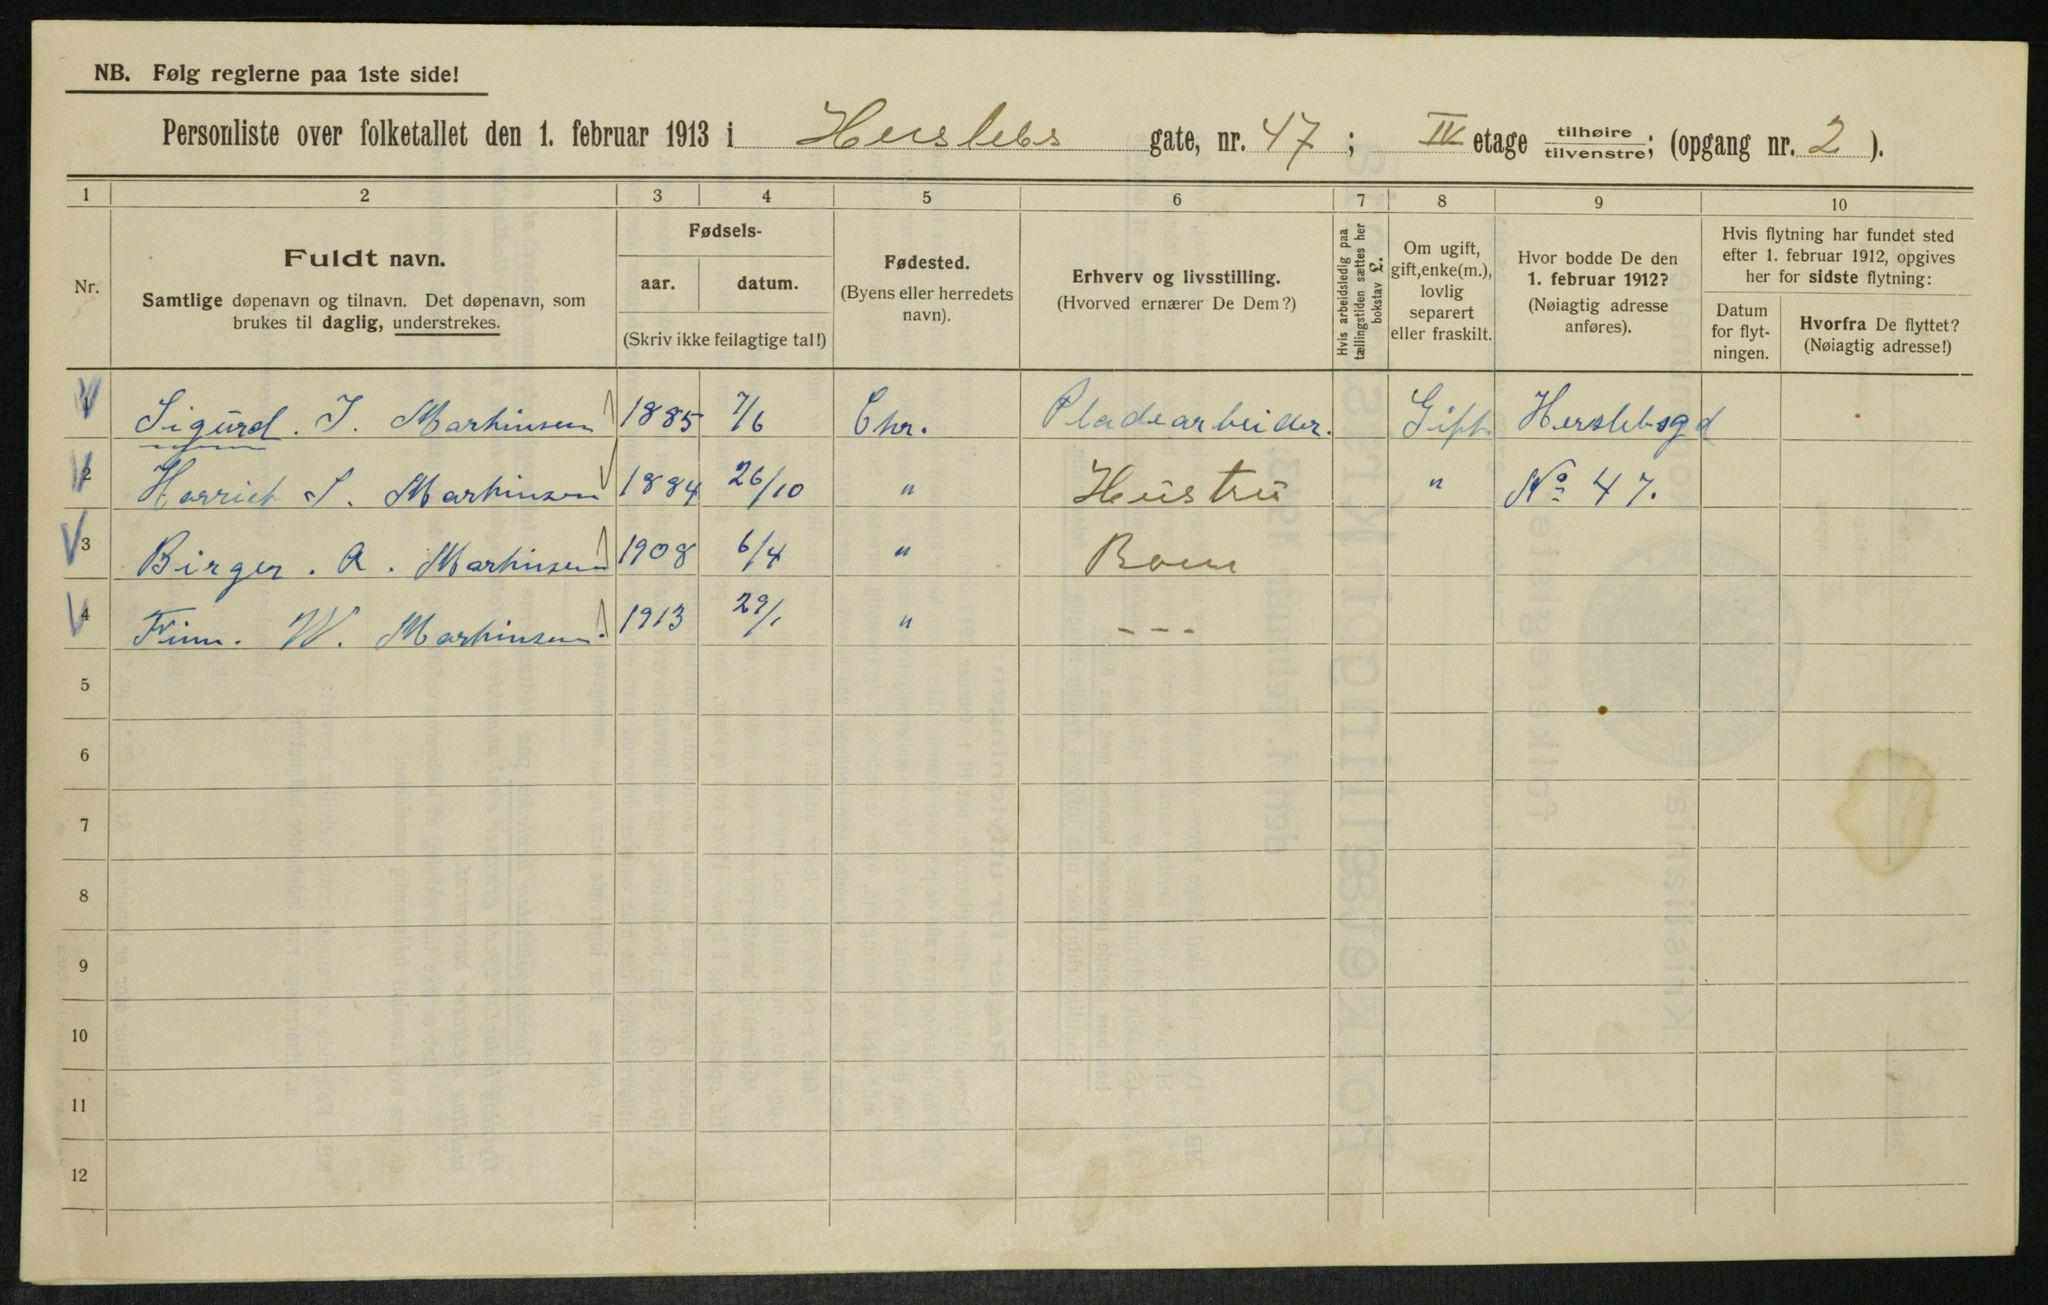 NB. Følg reglerne paa 1ste side!
Personliste over folketallet den 1. februar 1913 i Herslebs gate, nr. 47; IV etage tilhøire / tilvenstre; (opgang nr. 2).
1 2 3 4 5 6 7 8 9 10
Nr.
Fuldt navn.
Samtlige døpenavn og tilnavn. Det døpenavn, som
brukes til daglig, understrekes.
Fødsels-
aar. datum.
(Skriv ikke feilagtige tal!)
Fødested.
(Byens eller herredets
navn).
Erhverv og livsstilling.
(Hvorved ernærer De Dem?)
Hvis arbeidsledig paa
tællingstiden sættes her
bokstav L.
Om ugift,
gift, enke(m.),
lovlig
separert
eller fraskilt.
Hvor bodde De den
1. februar 1912?
(Nøiagtig adresse
anføres).
Hvis flytning har fundet sted
efter 1. februar 1912, opgives
her for sidste flytning:
Datum
for flyt-
ningen.
Hvorfra De flyttet?
(Nøiagtig adresse!)
1 Sigurd. I. Marthinsen 1885 7/6 Chr. Pladearbeider. Gift Herslebsgd
2 Harriet S. Marthinsen 1884 26/10 " Hustru " No 47.
3 Birger. A. Marthinsen 1908 6/4 " Barn
4 Finn. W. Marthinsen. 1913 29/1 " - - -
5
6
7
8
9
10
11
12